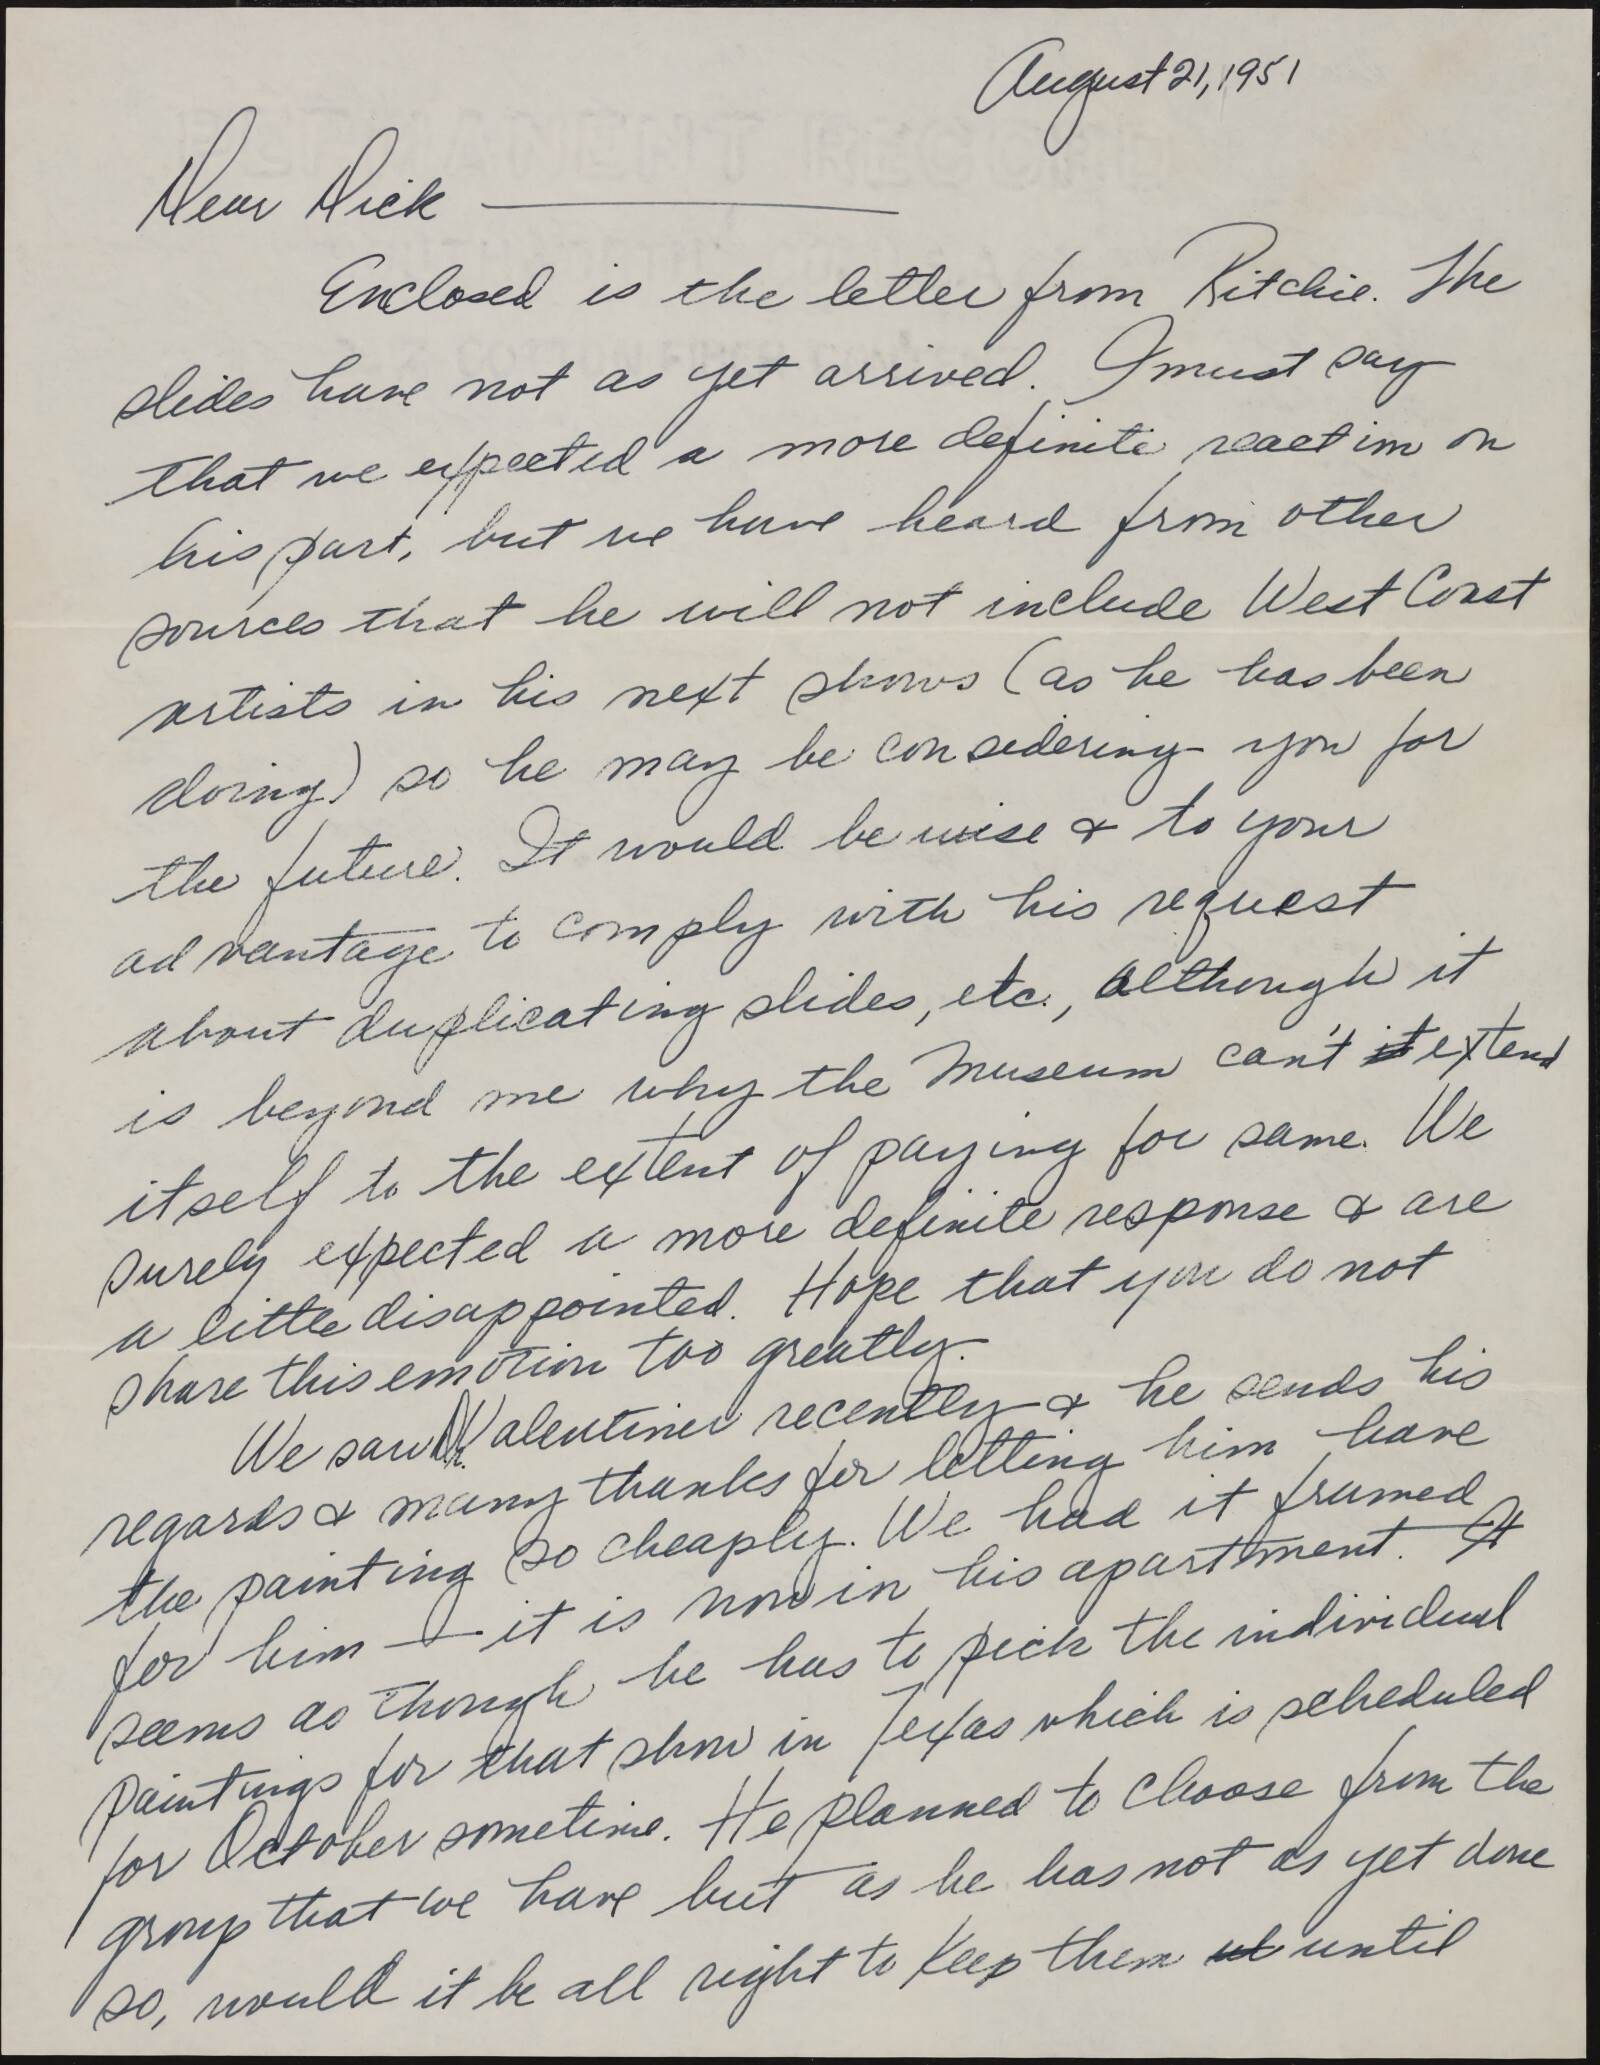 August 21, 1951
Dear Dick
Enclosed is the letter from Ritchie. The
slides have not as yet arrived. I must say
that we expected a more definite reaction on
his part, but we have heard from other
sources that he will not include West Coast
artists in his next shows (as he has been
doing) so he may be considering you for
the future. It would be wise & to your
advantage to comply with his request
about duplicating slides, etc., although it
is beyond me why the Museum can't it extend
itself to the extent of paying for same. We
surely expected a more definite response & are
a little disappointed. Hope that you do not
share this emotion too greatly.
We saw Dr. Valentiner recently & he sends his
regards & many thanks for letting him have
the painting so cheaply. We had it framed
for him — it is now in his apartment. It
seems as though he has to pick the individual
paintings for that show in Texas which is scheduled
for October sometime. He planned to choose from the
group that we have but as he has not as yet done
so, would it be all right to keep them ut until